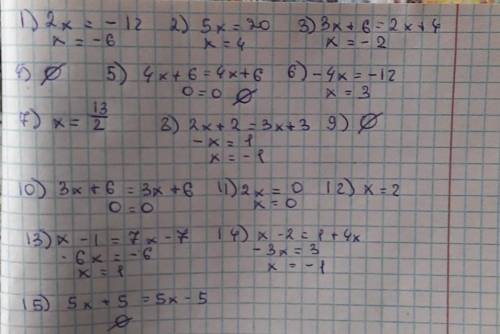 1) 2x = -12 2) 5x = 20 3) 3x + 6 = 2x + 4
x = -6 x = 4 x = -2
4) ∅ 5) 4x + 6 = 4x + 6 6) -4x = -12
0 = 0 ∅ x = 3
7) x = 13/2 8) 2x + 2 = 3x + 3 9) ∅
-x = 1
x = -1
10) 3x + 6 = 3x + 6 11) 2x = 0 12) x = 2
0 = 0 x = 0
13) x - 1 = 7x - 7 14) x - 2 = 1 + 4x
-6x = -6 -3x = 3
x = 1 x = -1
15) 5x + 5 = 5x - 5
∅